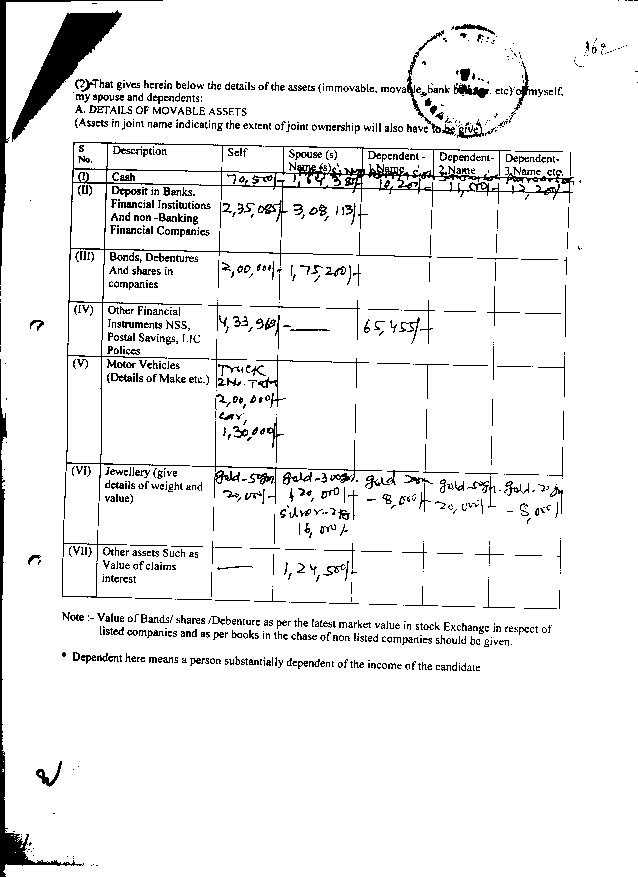 162
(2) That gives herein below the details of the assets (immovable, movable, bank etc) of myself,
my spouse and dependents:
A. DETAILS OF MOVABLE ASSETS
(Assets in joint name indicating the extent of joint ownership will also have to be give)
S No. Description Self Spouse (s) Name (s) Dependent - 1.Name Dependent- 2.Name Dependent- 3.Name etc.
(I) Cash 70,500/- 10,200/- 11,500/- 12,200/-
(II) Deposit in Banks. 
Financial Institutions 2,35,085/- 3,08,113/-
And non -Banking
Financial Companies
(III) Bonds, Debentures
And shares in 2,00,000/- 1,75,200/-
companies
(IV) Other Financial
Instruments NSS, 4,33,969/- — 65,455/-
Postal Savings, LIC
Polices
(V) Motor Vehicles Truck
(Details of Make etc.) 2 No. Tata
2,00,000/-
Car,
1,30,000/-
(VI) Jewellery (give gold-50gm gold-300gm. gold 20gm gold-50gm. gold-20gm
details of weight and 20,000/- 120,000/- - 8,000/- 20,000/- - 8,000/-
value) silver-2kg
16,000/-
(VII) Other assets Such as
Value of claims — 1,24,500/-
interest
Note :- Value of Bands/ shares /Debenture as per the latest market value in stock Exchange in respect of
listed companies and as per books in the chase of non listed companies should be given.
* Dependent here means a person substantially dependent of the income of the candidate